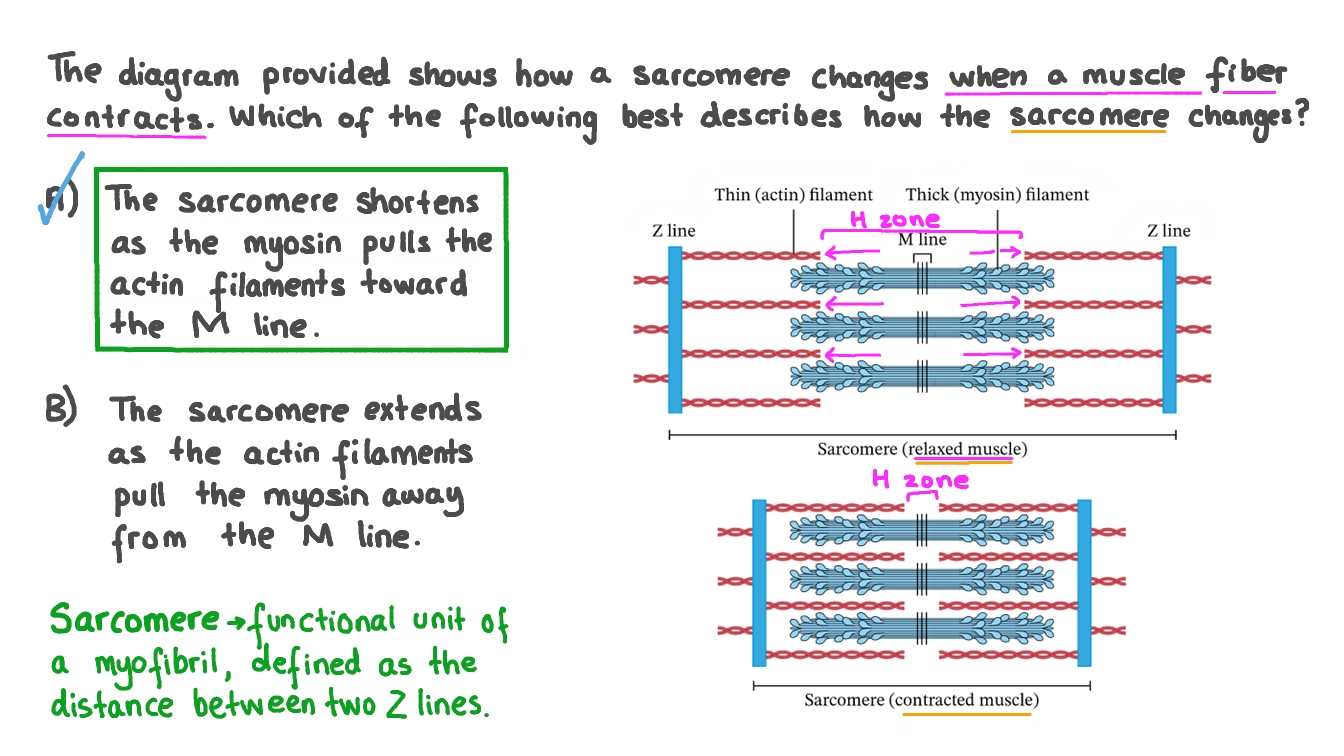 The diagram provided shows how a sarcomere changes when a muscle fiber
contracts. Which of the following best describes how the sarcomere changes?
A) The sarcomere shortens
as the myosin pulls the
actin filaments toward
the M line.
B) The sarcomere extends
as the actin filaments
pull the myosin away
from the M line.
Sarcomere → functional unit of
a myofibril, defined as the
distance between two Z lines.
Thin (actin) filament Thick (myosin) filament
H zone
Z line M line Z line
Sarcomere (relaxed muscle)
H zone
Sarcomere (contracted muscle)